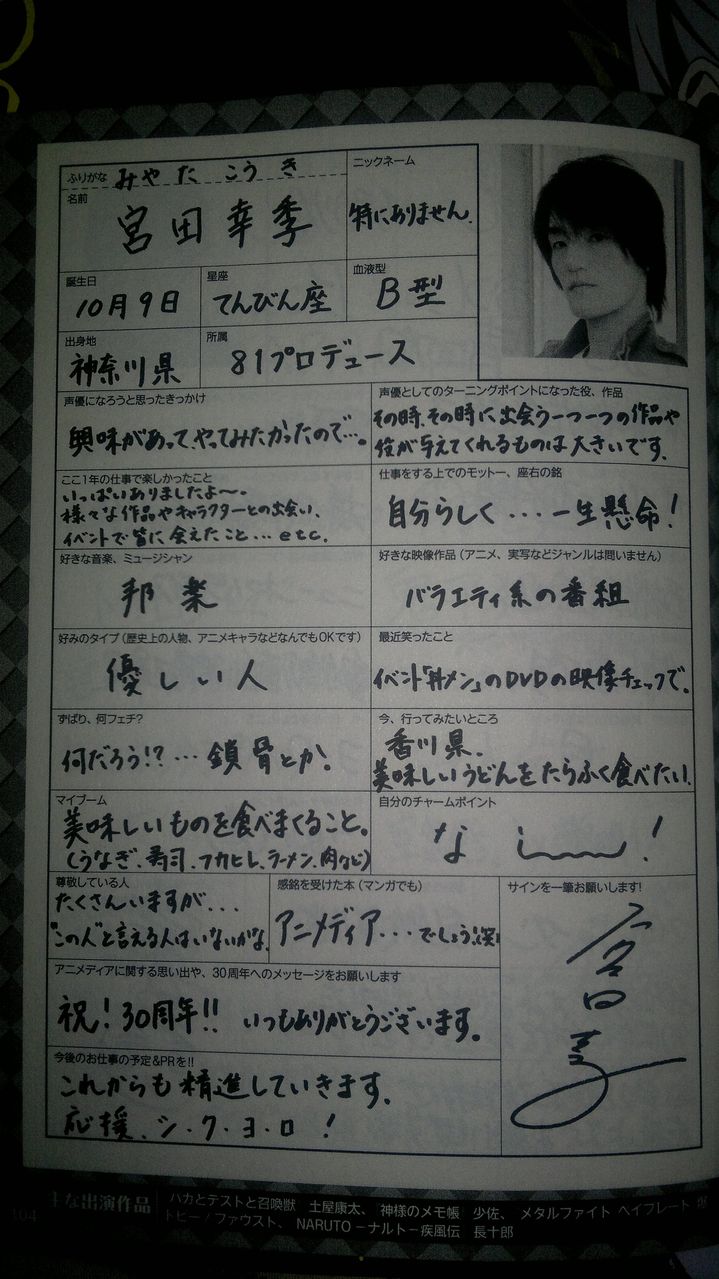 ふりがな みやた こうき
名前
宮田幸季
ニックネーム
特にありません.
誕生日
10月9日
星座
てんびん座
血液型
B型
出身地
神奈川県
所属
81プロデュース
声優になろうと思ったきっかけ
興味があって、やってみたかったので…。
声優としてのターニングポイントになった役、作品
その時、その時に出会う一つ一つの作品や
役が与えてくれるものは大きいです.
ここ1年の仕事で楽しかったこと
いっぱいありましたよ〜.
様々な作品やキャラクターとの出会い、
イベントで皆に会えたこと…etc.
仕事をする上でのモットー、座右の銘
自分らしく...一生懸命!
好きな音楽、ミュージシャン
邦楽
好きな映像作品(アニメ、実写などジャンルは問いません)
バラエティ系の番組
好みのタイプ(歴史上の人物、アニメキャラなどなんでもOKです)
優しい人
最近笑ったこと
イベント「丼メン」のDVDの映像チェックで。
ずばり、何フェチ?
何だろう!?…鎖骨とか.
今、行ってみたいところ
香川県.
美味しいうどんをたらふく食べたい.
マイブーム
美味しいものを食べまくること。
(うなぎ、寿司、フカヒレ、ラーメン、肉など)
自分のチャームポイント
なし〜〜!
尊敬している人
たくさんいますが...
"この人"と言える人はいないかな.
感銘を受けた本(マンガでも)
アニメディア...でしょう(笑)
サインを一筆お願いします!
アニメディアに関する思い出や、30周年へのメッセージをお願いします
祝!30周年!! いつもありがとうございます。
今後のお仕事の予定&PRを!!
これからも精進していきます.
応援、シ・ク・ヨ・ロ!
104
主な出演作品
バカとテストと召喚獣 土屋康太、神様のメモ帳 少佐、メタルファイト ベイブレード
トビー/ファウスト、NARUTO－ナルト－疾風伝 長十郎